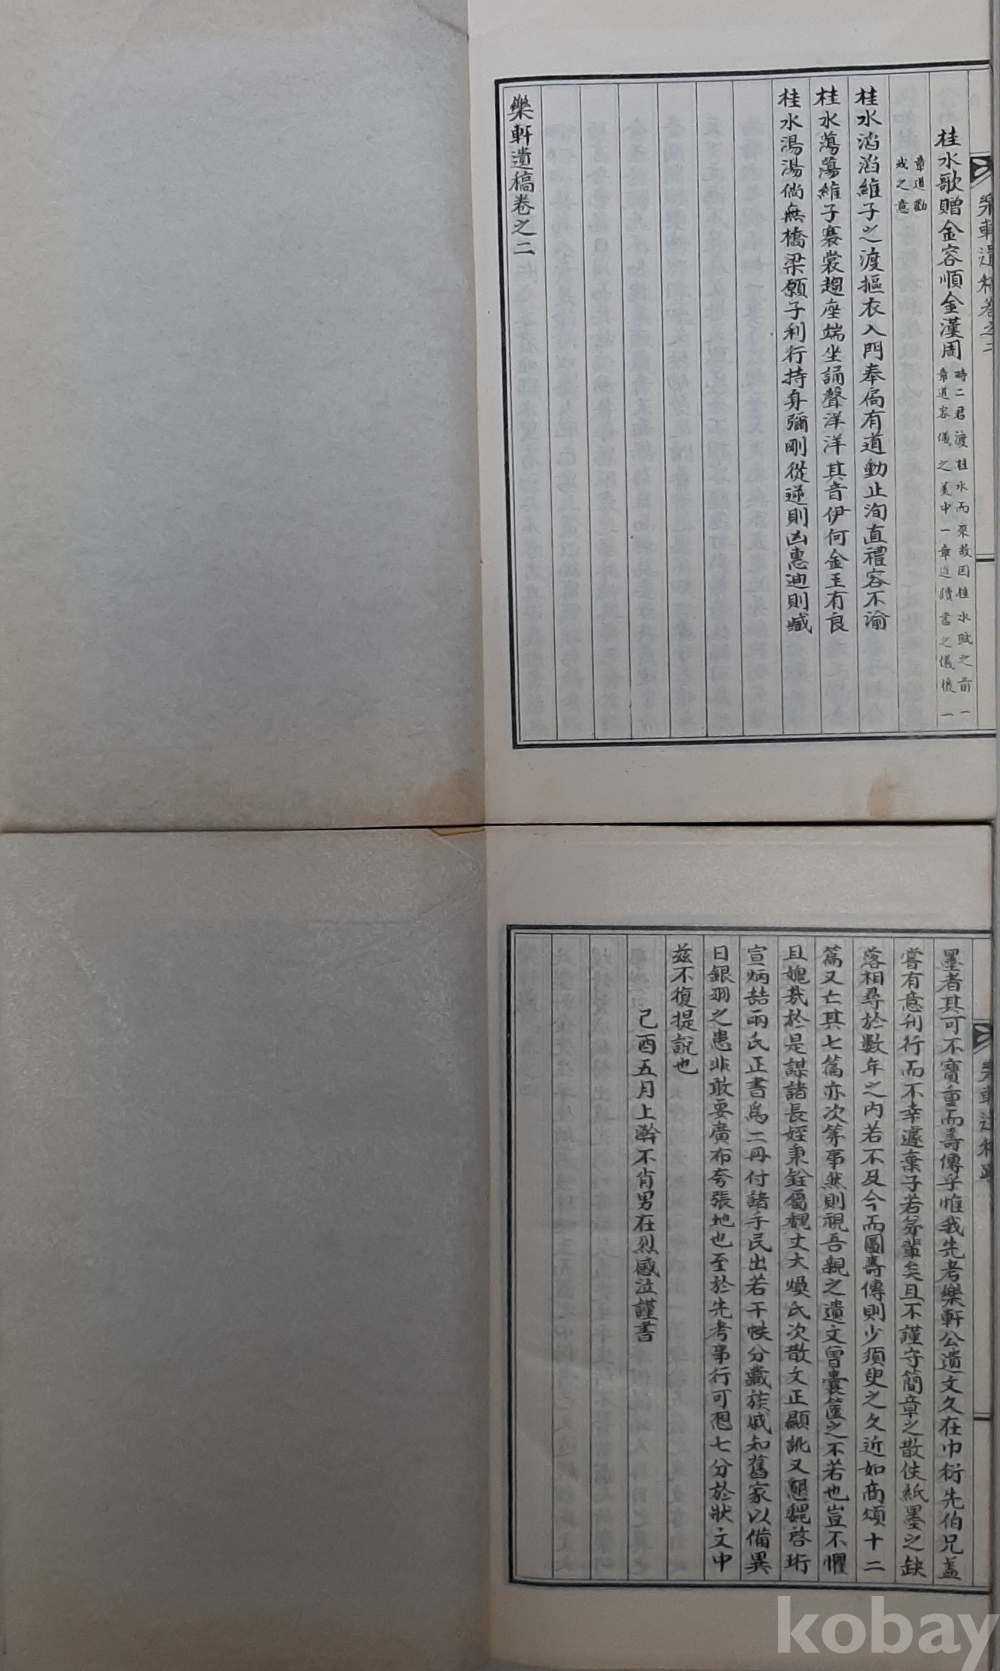 樂軒遺稿卷之二
桂水歌贈金容順金漢周 時二君渡桂水而來故因桂水賦之前一
章道容儀之美中一章道讀書之儀後一
章道勸
戒之意
桂水滔滔維子之渡摳衣入門奉鬲有道動止洵直禮容不渝
桂水蕩蕩維子褰裳趨座端坐誦聲洋洋其音伊何金玉有良
桂水湯湯倘無橋梁願子利行持身彌剛從逆則凶惠迪則臧
樂軒遺稿卷之二
樂軒遺稿
墨者其可不寶重而壽傳乎惟我先考樂軒公遺文久在巾衍先伯兄盖
嘗有意刊行而不幸遽棄子若弟輩矣且不謹守簡章之散佚紙墨之缺
落相尋於數年之內若不及今而圖壽傳則少須臾之久近如商頌十二
篇又亡其七篇亦次第事然則視吾親之遺文曾囊篋之不若也豈不懼
且媿哉於是謀諸長姪秉銓屬魏丈大煥氏次散文正顯訛又懇魏啓珩
宣炳喆兩氏正書爲二冊付諸手民出若干帙分藏族戚知舊家以備異
日銀羽之患非敢要廣布夸張地也至於先考事行可想七分於狀文中
玆不復提說也
己酉五月上澣不肖男在烈感泣謹書
kobay